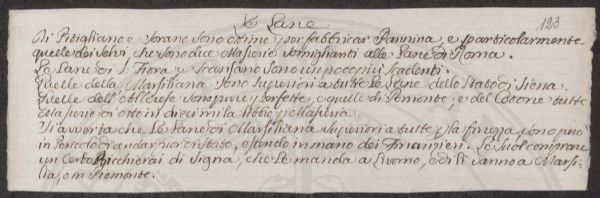 Le Lane
123
Di Pitigliano e Sorano sono ottime p fabbricar Pannina, e particolarmente
quelle dei Selvi, che sono due Masserie somiglianti alle Lane di Roma.
Le Lane di S. Fiora e Scansano sono un poco più scadenti.
Quelle della Marsiliana sono Superiori a tutte le Lane dello Stato di Siena.
Quelle dell' sono pure perfette, e quelle di Piemonte, e del Cotone tutte
Masserie di otto in dieci mila libbre p Masseria.
Si avverta che le Lane di Marsiliana Superiori a tutte p la finezza, sono pure
in Pericolo di andar fuori di Stato, essendo in mano dei Finanzieri. Le suol comprare
un certo Bicchierai di Signa, che le manda a Livorno, e di lì vanno a Marsi-
lia, o in Piemonte.